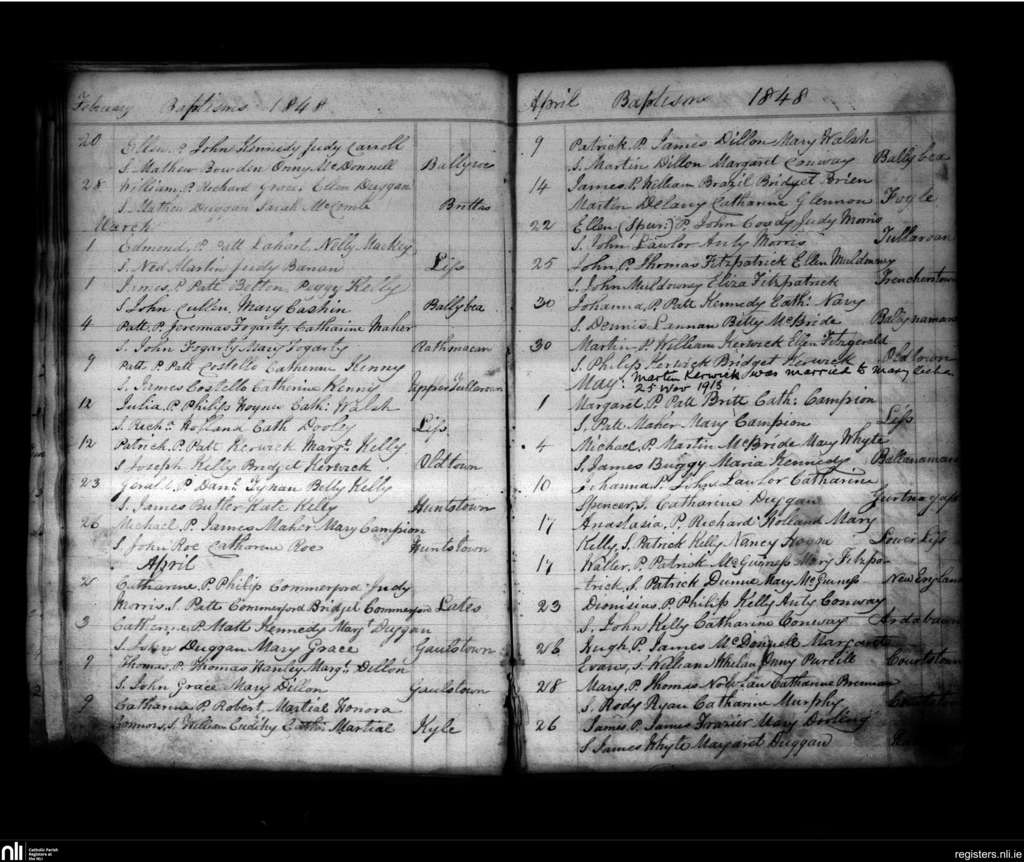 February Baptisms 1848
20 Ellen, P. John Kennedy Judy Carroll
S. Mathew Bowden Onny McDonnell
28 William, P. Richard Grace Ellen Duggan
S. Mathew Duggan Sarah McCombe Brittas
March
1 Edmund, P. Patt Lahart Nelly Mackey
S. Ned Martin Judy Banan Liss
1 James, P. Patt Betton Peggy Kelly
S. John Cullen, Mary Cashin Ballybea
4 Patt. P. Jeremias Fogarty, Catharine Maher
S. John Fogarty Mary Fogarty Rathmacan
9 Patt P. Patt Costello Catherine Kenny
S. James Costello Catherine Kenny Upper Tullaroan
12 Julia, P. Philip Hoyne Cath: Walsh
S. Rich:d Holland Cath Dooley Liss
12 Patrick, P. Patt Kerwick Marg:t Kelly
S Joseph Kelly Bridget Kerwick Oldtown
23 Gerald, P. Dan:l Tynan Betty Kelly
S. James Butler Kate Kelly Huntstown
26 Michael P. James Maher Mary Campion
S. John Roe Catherine Roe Huntstown
April
Catharine P. Philip Commerford Judy
Morris, S. Patt Commerford Bridget Commerford Lates
3 Catherine, P. Matt Kennedy Marg:t Duggan
S. John Duggan Mary Grace Gaulstown
Thomas, P. Thomas Hanley Marg:t Dillon
S. John Grace Mary Dillon Gaulstown
9 Catharine P. Robert Martial Honora
Connors, S. William Cuddihy Cath: Martial Kyle
April Baptism 1848
9 Patrick, P. James Dillon Mary Walsh
S. Martin Dillon Margaret Conway Ballybea
14 James, P. William Brazil Bridget Brien
Martin Delany Catharine Glennon Foyle
22 Ellen (Spur:) P. John Coody Judy Morris
S. John Lawlor Anty Morris Tullaroan
25 John, P. Thomas Fitzpatrick Ellen Muldowney
S. John Muldowney Eliza Fitzpatrick Trencherstown
30 Johanna, P. Patt Kennedy Cath: Nary
S. Dennis Lannan Bitty McBride
30 Martin P. William Kerwick Ellen Fitzgerald
S. Philip Kerwick Bridget Kerwick Oldtown
May. Martin Kerwick was married to Mary
25 Nov 1913
1 Margaret, P. Patt Britt Cath: Campion
S. Patt Maher Mary Campion Liss
4 Michael, P. Martin McBride Mary Whyte
S. James Buggy Maria Kennedy
10 Johanna, P. John Lawlor Catharine
Spencer, S. Catharine Duggan
17 Anastasia, P. Richard Holland Mary
Kelly, S. Patrick Kelly Nancy Hogan Lower Liss
17 Walter, P. Patrick McGuinness Mary Fitzpa-
trick, S. Patrick Dunne Mary McGuiness New England
23 Dionisius, P. Philip Kelly Anty Conway
S. John Kelly Catharine Conway
26 Hugh, P. James McDonnell Margaret
Evans, S. William Whelan Onny Purcell Courtstown
28 Mary, P. Thomas Nowlan Catharine Brennan
S. Rody Ryan Catharine Murphy
26 James, P. James Frazier Mary Dowling
S James Whyte Margaret Duggan
nli Catholic Parish
Registers at
the NLI
registers.nli.ie